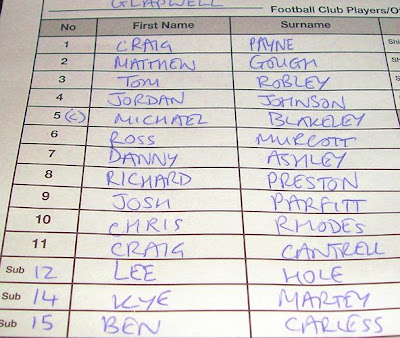 GLAPWELL Football Club Players/O
No First Name Surname
1 CRAIG PAYNE Shi
2 MATTHEW GOUGH Shi
3 TOM ROBLEY
4 JORDAN JOHNSON
5 (C) MICHAEL BLAKELEY
6 ROSS MURCOTT
7 DANNY ASHLEY
8 RICHARD PRESTON
9 JOSH PARFITT
10 CHRIS RHODES
11 CRAIG CANTRELL
Sub 12 LEE HOLE
Sub 14 KYE MARTEY
Sub 15 BEN CARLESS